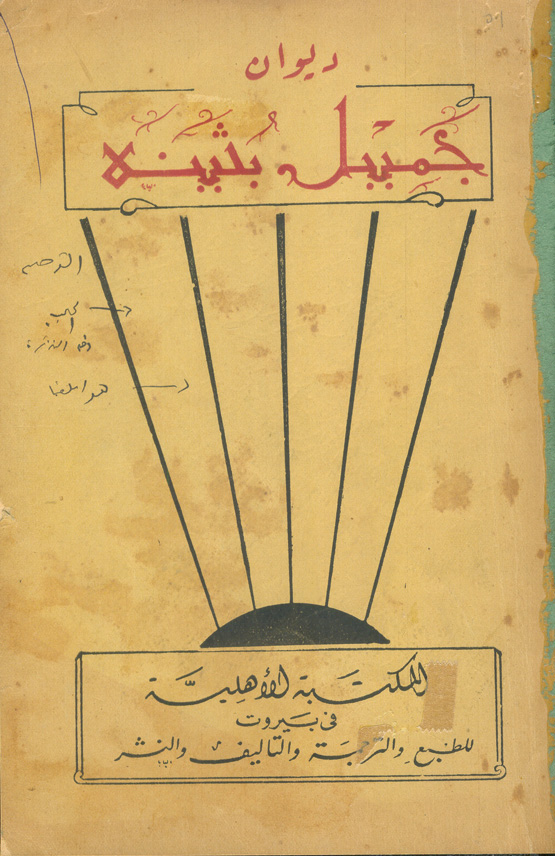 ديوان
جميل بثينه
المكتبة الأهلية
في بيروت
للطبع والترجمة والتأليف والنشر